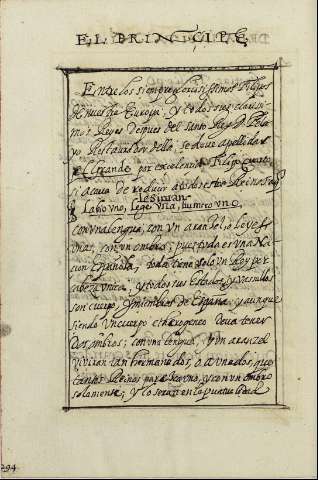 EL PRINCIPE
Entre los siempre gloriosissimos Filipos
de nuestra Europa; y todos sus clarissi-
mos Reyes despues del santo Rey D. Pela
yo Restaurador della, se deve apellidar
el Grande por excelencia Filipo quarto,
si acava de reducir a todos estos Reinos
Labio uno, lege una, humero uno,
con una lengua, con un arancel, o leyes
unas, con un ombro; pues toda es una Na
cion Española; toda tiene solo un Rey por
cabeza unica; y todos sus Estados, y vasallos
son cuerpo, y miembros de España. y aunque
siendo un cuerpo etherogeneo deva tener
dos ombros; con una lengua, y un arancel
viviran tan hermanados, o aunados,
tantos Reinos para con un ombro
solamente; y lo seran en la puntualidad
294